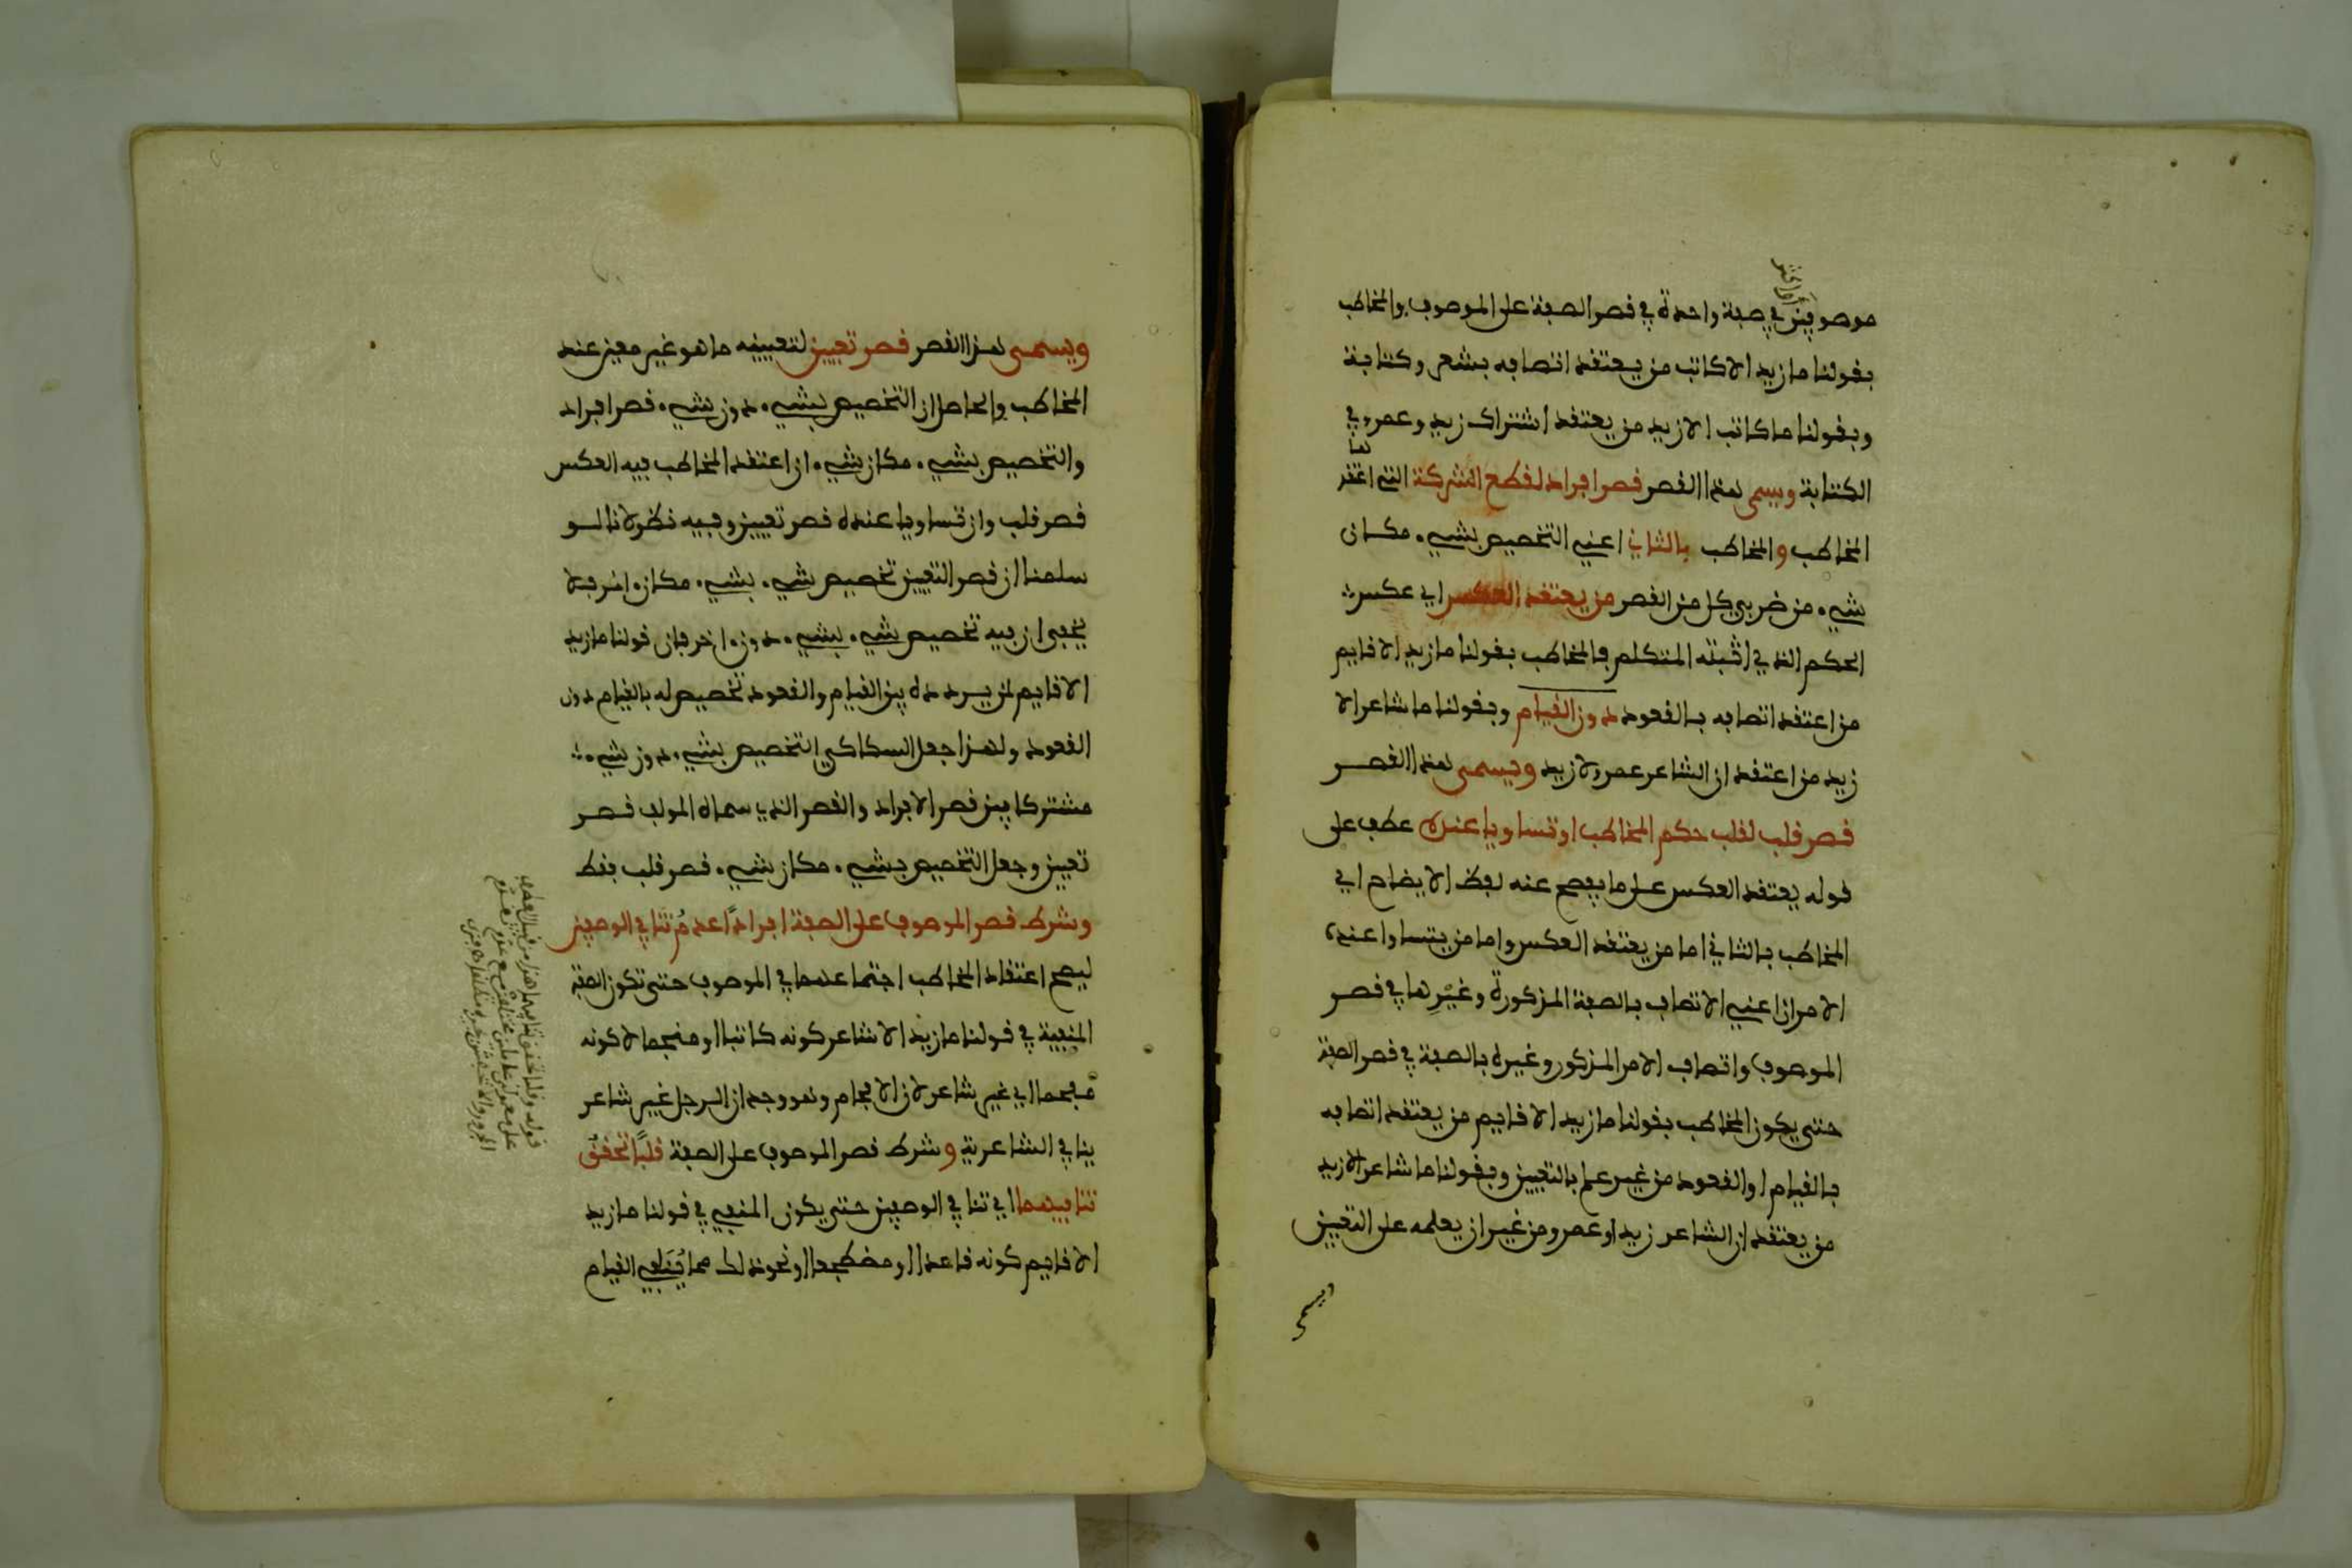 موصوفين في صفة واحدة في قصر الصفة على الموصوف والمخاطب
بقولنا ما زيد الا كاتب من يعتقد اتصافه بشعر وكتابة
وبقولنا ما كاتب الا زيد من يعتقد اشتراك زيد وعمرو في
الكتابة ويسمى هذا القصر قصر افراد لقطع الشركة التي اعتقدها
المخاطب والمخاطب بالثاني اعني التخصيص بشيء مكان
شيء من ضربي كل من القصر من يعتقد العكس اي عكس
الحكم الذي اثبته المتكلم فالمخاطب بقولنا ما زيد الا قايم
من اعتقد اتصافه بالقعود دون القيام وبقولنا ما شاعر الا
زيد من اعتقد ان الشاعر عمرو لا زيد ويسمى هذا القصر
قصر قلب لقلب حكم المخاطب او تساويا عنده عطف على
قوله يعتقد العكس على ما يفصح عنه لفظ الايضاح اي
المخاطب بالثاني اما من يعتقد العكس واما من يتساوا عنده
الامران اعني الاتصاف بالصفة المذكورة وغيرها في قصر
الموصوف واتصاف الامر المذكور وغيره بالصفة في قصر الصفة
حتى يكون المخاطب بقولنا ما زيد الا قايم من يعتقد اتصافه
بالقيام او القعود من غير علم بالتعيين وبقولنا ما شاعر الا زيد
من يعتقد ان الشاعر زيد او عمرو من غير ان يعلمه على التعيين
ويسمى
ويسمى هذا القصر قصر تعيين لتعيينه ما هو غير معين عند
المخاطب والحاصل ان التخصيص بشيء دون شيء قصر افراد
والتخصيص بشيء مكان شيء ان اعتقد المخاطب فيه العكس
قصر قلب وان تساويا عنده قصر تعيين وفيه نظر لانا لو
سلمنا ان قصر التعيين تخصيص شيء بشيء مكان اخر فلا
يخفى ان فيه تخصيص شيء بشيء دون اخر فان قولنا ما زيد
الا قايم لمن يردده بين القيام والقعود تخصيص له بالقيام دون
القعود ولهذا جعل السكاكي التخصيص بشيء دون شيء
مشتركا بين قصر الافراد والقصر الذي سماه المولف قصر
تعيين وجعل التخصيص بشيء مكان شيء قصر قلب فقط
وشرط قصر الموصوف على الصفة افرادا عدم تنافي الوصفين
ليصح اعتقاد المخاطب اجتماعهما في الموصوف حتى تكون الصفة
المنفية في قولنا ما زيد الا شاعر كونه كاتبا او منجما لا كونه
مفحما اي غير شاعر لان الافحام وهو وجدان الرجل غير شاعر
ينافي الشاعرية وشرط قصر الموصوف على الصفة قلبا تحقق
تنافيهما اي تنافي الوصفين حتى يكون المنفي في قولنا ما زيد
الا قايم كونه قاعدا او مضطجعا او نحو ذلك مما ينافي القيام